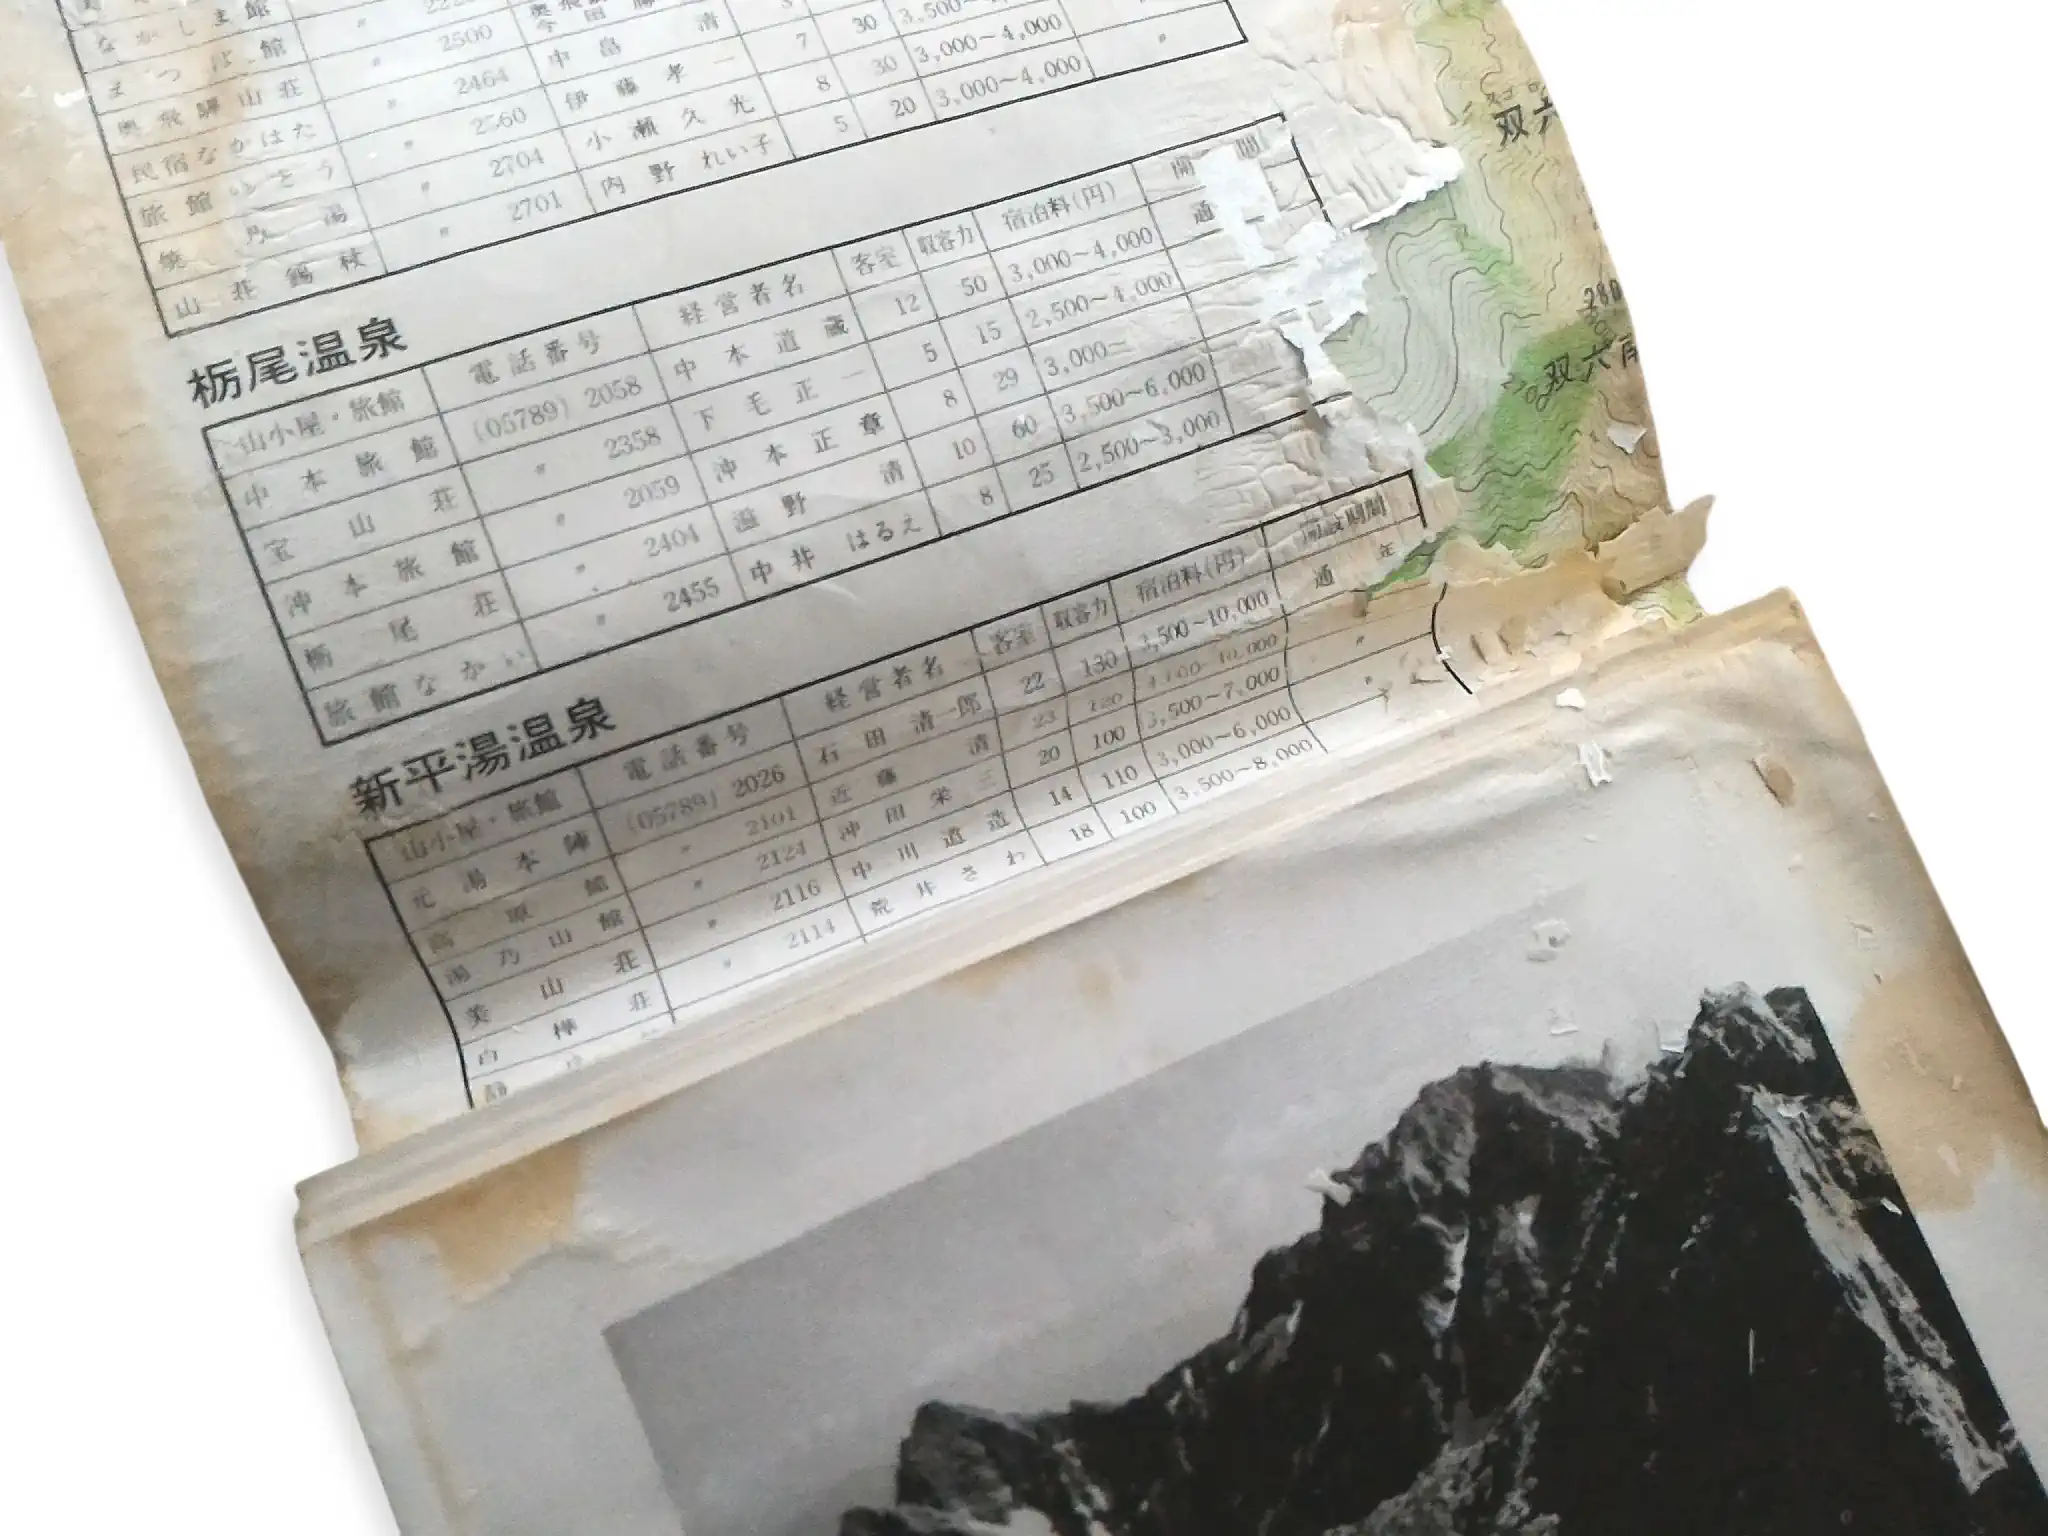 館
なかしま館 〃 2500 中畠清 7 30 3,000～4,000 〃
まつば館 〃 2464 伊藤孝一 8 30 3,000～4,000
奥飛騨山荘 〃 2560 小瀬久光 5 20
民宿なかはた 〃 2704 内野れい子
旅館いとう 〃 2701
湯
山荘錫杖
栃尾温泉
山小屋・旅館 電話番号 経営者名 客室 収容力 宿泊料(円) 開 間
中本旅館 (05789) 2058 中本道蔵 12 50 3,000～4,000 通
宝山荘 〃 2358 下毛正一 5 15 2,500～4,000
沖本旅館 〃 2059 沖本正章 8 29 3,000～
栃尾荘 〃 2404 溢野清 10 60 3,500～6,000
旅館なかい 〃 2455 中井はるえ 8 25 2,500～3,000
新平湯温泉
山小屋・旅館 電話番号 経営者名 客室 収容力 宿泊料(円) 開設期間
元湯本陣 (05789) 2026 石田清一郎 22 130 3,500～10,000 通年
高原館 〃 2101 近藤清 23 120 〃
湯乃山館 〃 2124 沖田栄三 20 100 3,500～7,000 〃
美山荘 〃 2116 中川道造 14 110 3,000～6,000
白樺荘 〃 2114 荒井さわ 18 100 3,500～8,000
双六
双六南
270